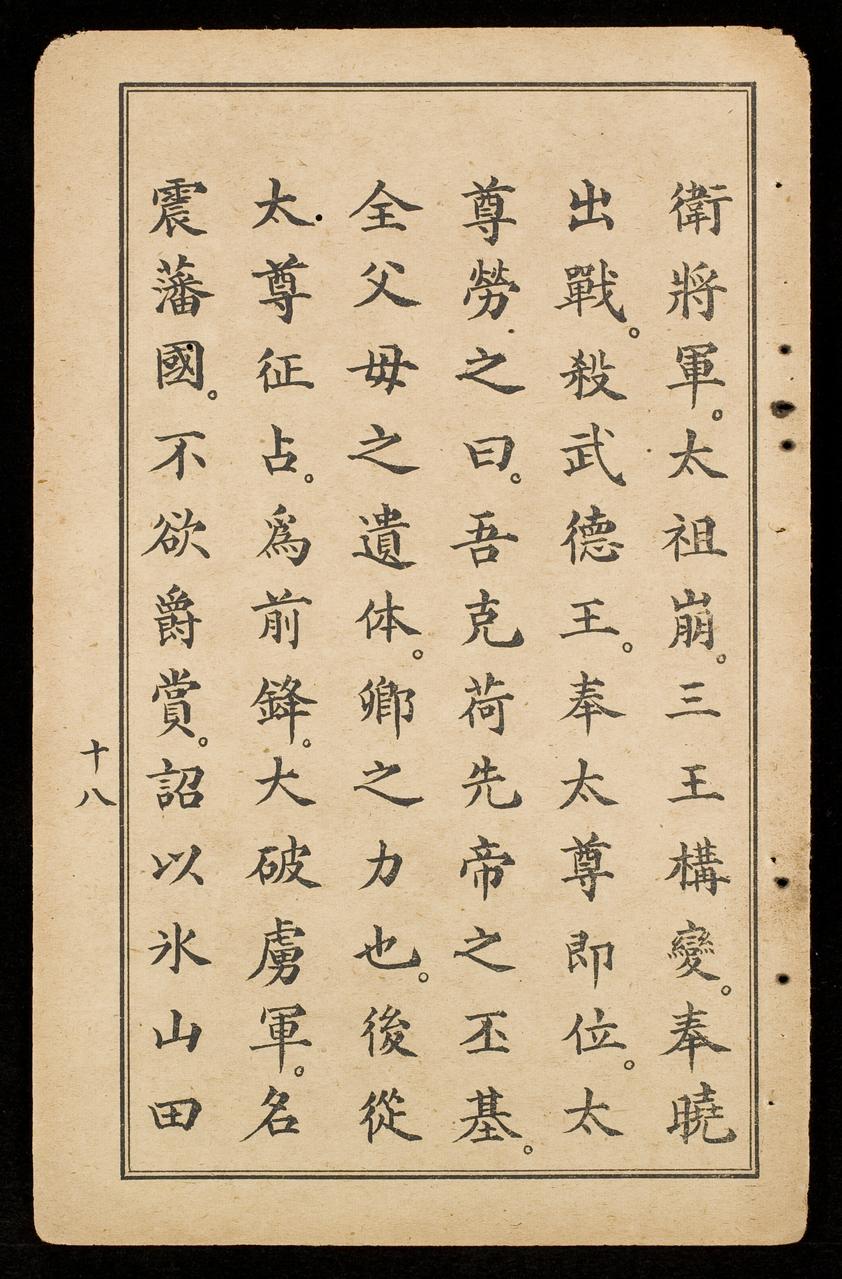 衛將軍。太祖崩。三王構變。奉曉
出戰。殺武德王。奉太尊即位。太
尊勞之曰。吾克荷先帝之丕基。
全父母之遺体。卿之力也。後從
太尊征占。爲前鋒。大破虜軍。名
震藩國。不欲爵賞。詔以氷山田
十八